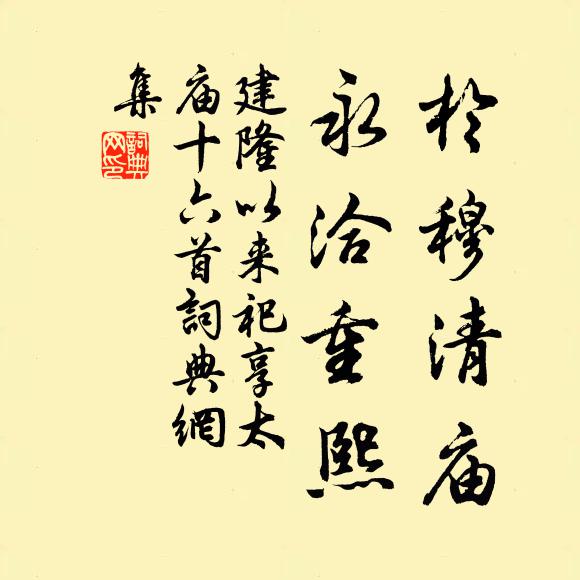 於穆清庙
永洽重熙
建隆以来祀享太
庙十六首詞典網
集
詞典網印